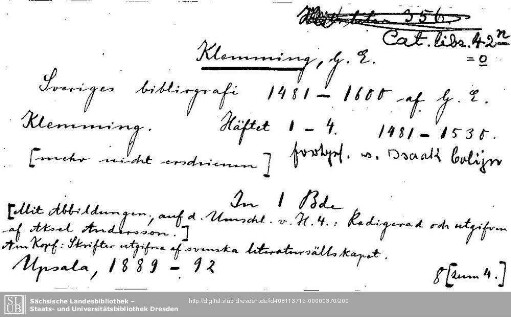 356
Cat. libs. 42ⁿ
= o
Klemming, G. E.
Sveriges bibliografi 1481 – 1600 af G. E.
Klemming. Häftet 1 – 4. 1481 – 1530.
[mehr nicht erschienen] fortges. v. Isaak Collijn
In 1 Bde
[Mit Abbildungen, auf d. Umschl. v. H. 4.: Redigerad och utgifven
af Aksel Andersson.]
Am Kopf: Skrifter utgifna af svenska literatursällskapet.
Upsala, 1889 – 92
8 [zum 4.]
SLUB
Sächsische Landesbibliothek –
Staats- und Universitätsbibliothek Dresden